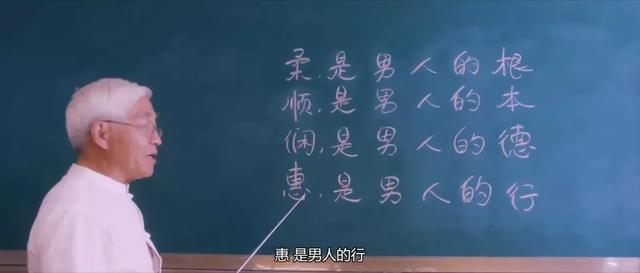 柔,是男人的根
顺,是男人的本
娴,是男人的德
惠,是男人的行
惠 是男人的行